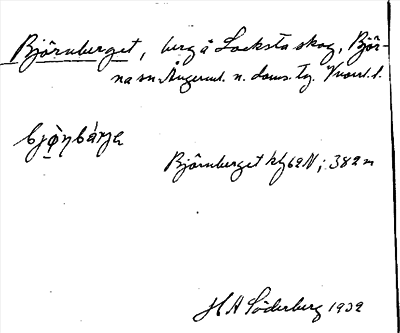 Björnberget, berg å Locksta skog, Björ-
na sn Ångerml. n. doms. tg. Västl. l.
Björnberget kbl 62 N; 382 m
H A Söderberg 1932